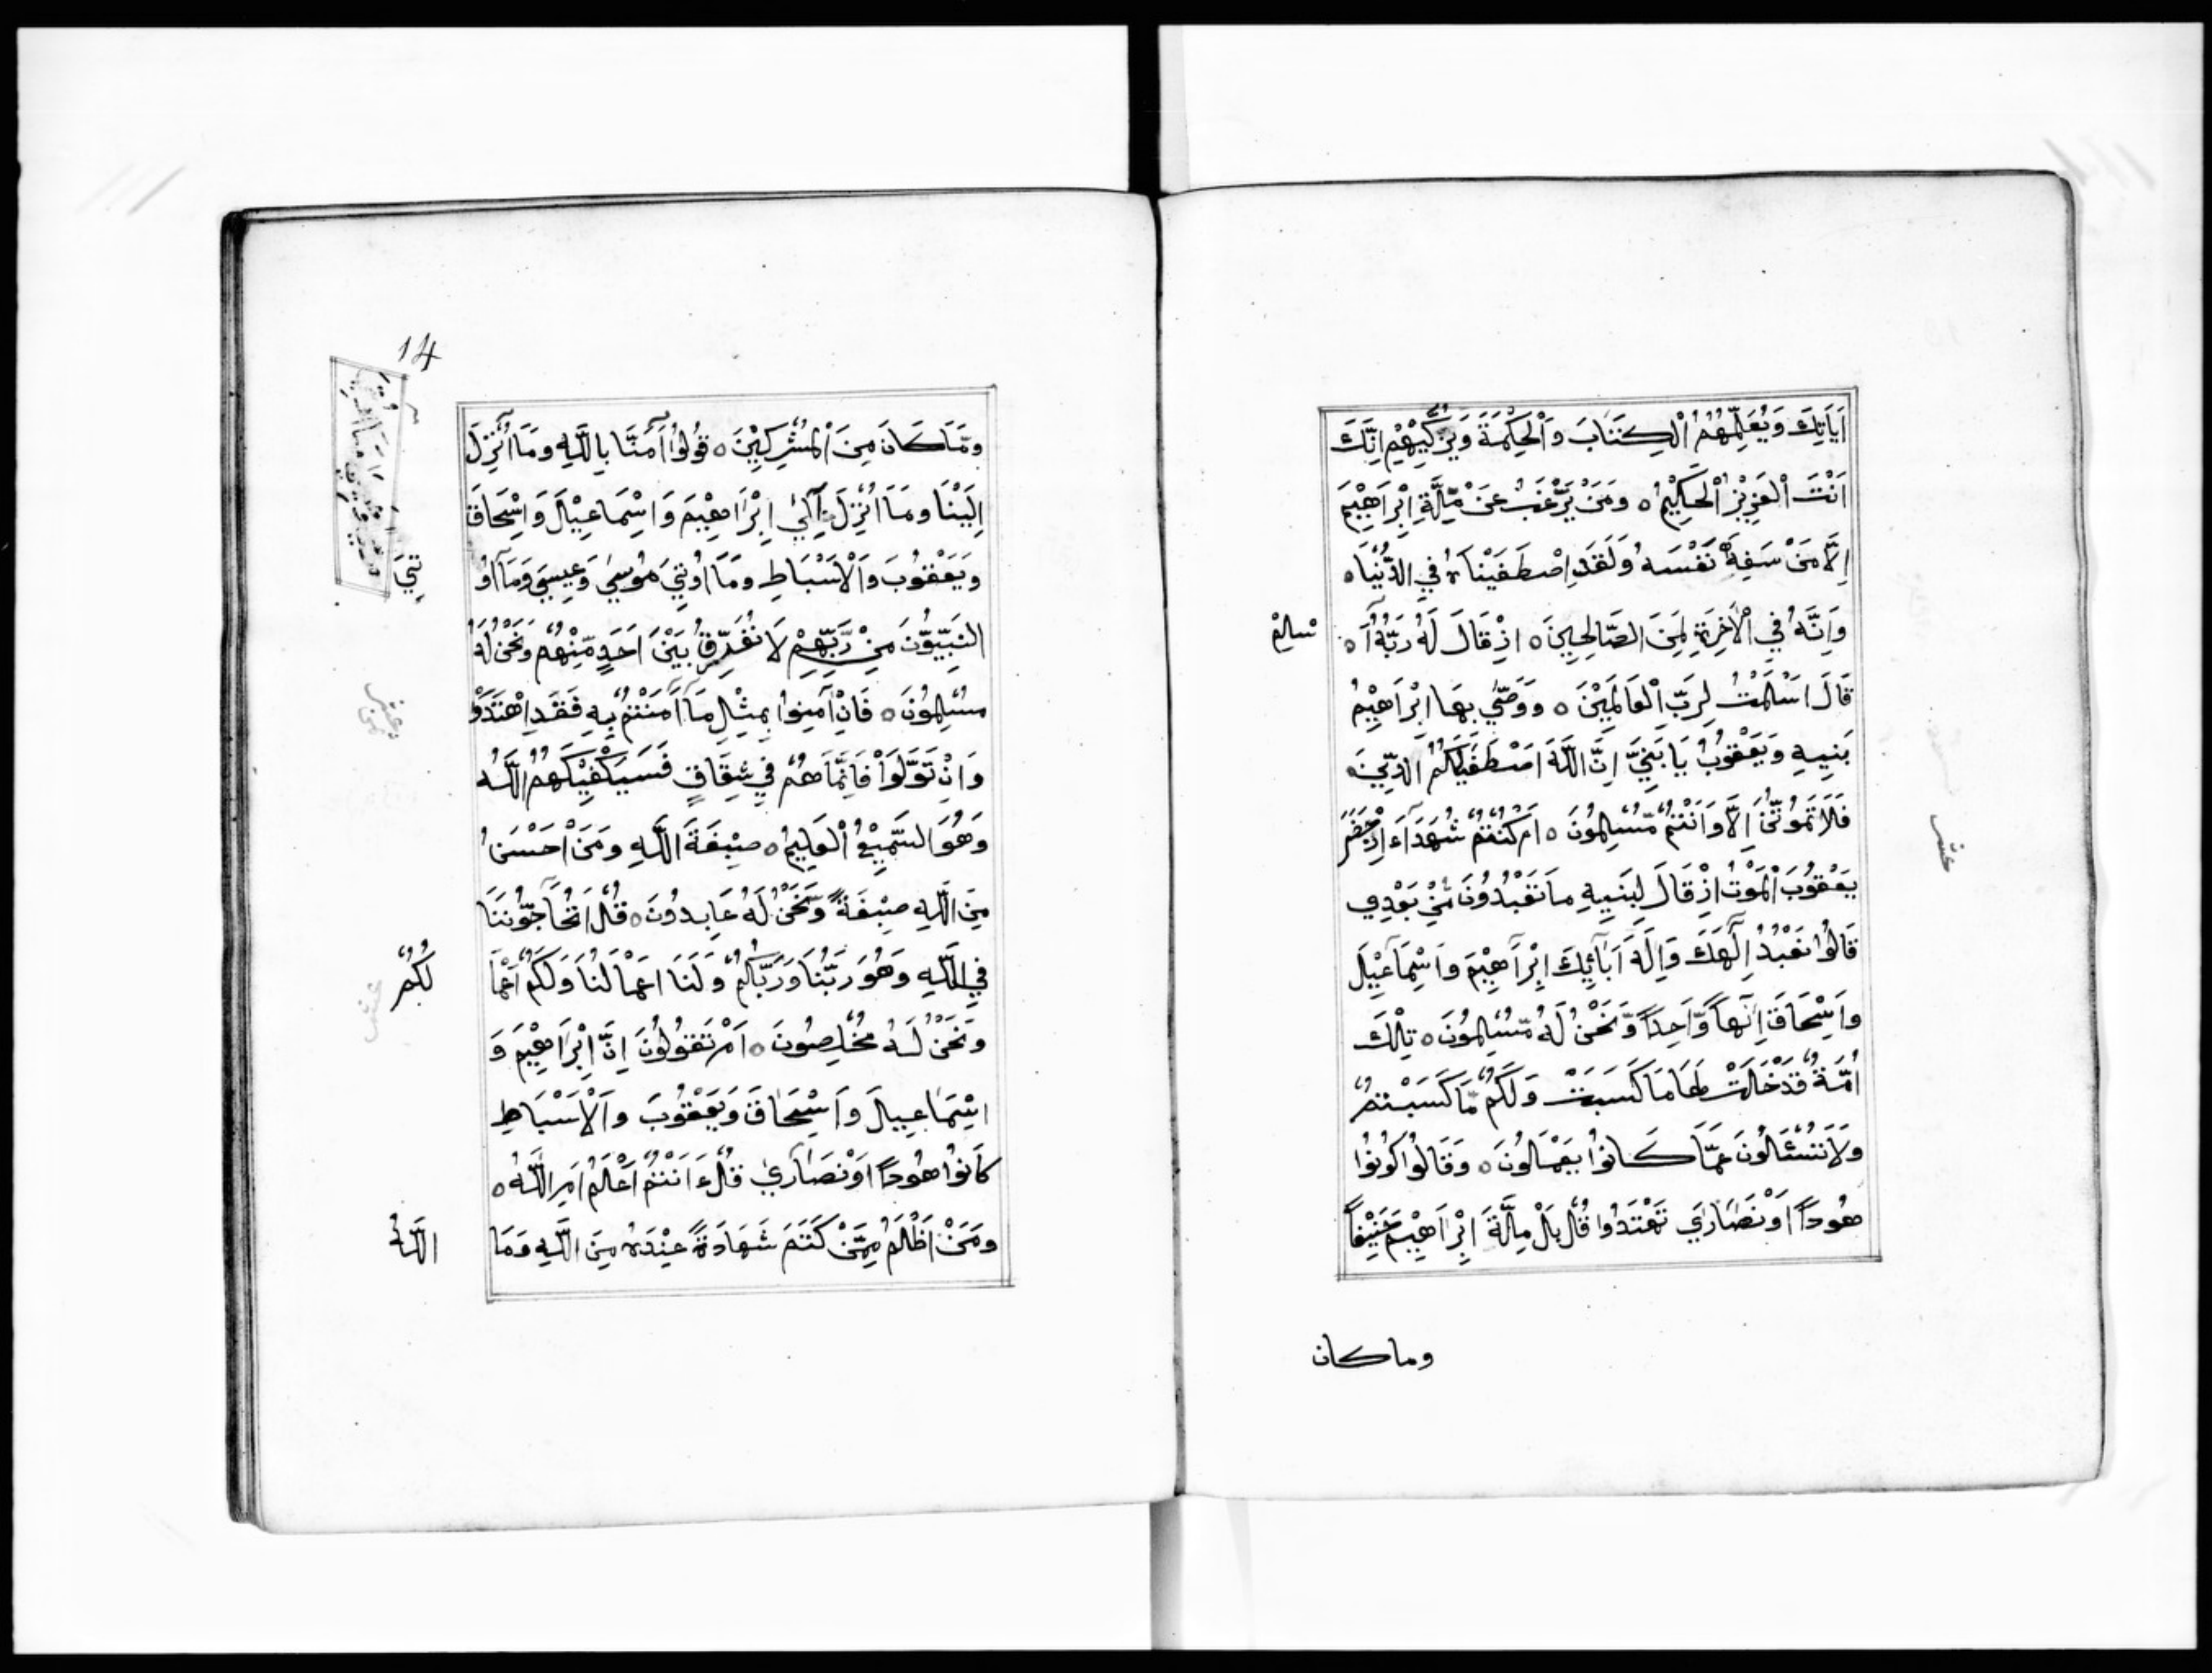 اٰيَاتِكَ وَيُعَلِّمُهُمُ الْكِتَابَ وَالْحِكْمَةَ وَيُزَكِّيْهِمْ اِنَّكَ
اَنْتَ الْعَزِيْزُ الْحَكِيْمُ ٥ وَمَنْ يَّرْغَبُ عَنْ مِّلَّةِ اِبْرَاهِيْمَ
اِلَّا مَنْ سَفِهَ نَفْسَهُ وَلَقَدِ اصْطَفَيْنَاهُ فِي الدُّنْيَا ٥
وَاِنَّهُ فِي الْاٰخِرَةِ لَمِنَ الصَّالِحِيْنَ ٥ اِذْ قَالَ لَهُ رَبُّهُ اَ ٥
سْلِمْ
قَالَ اَسْلَمْتُ لِرَبِّ الْعَالَمِيْنَ ٥ وَوَصّٰي بِهَا اِبْرَاهِيْمُ
بَنِيهِ وَيَعْقُوْبُ يَا بَنِيَّ اِنَّ اللّٰهَ اصْطَفٰي لَكُمُ الدِّيْنَ
فَلَا تَمُوْتُنَّ اِلَّا وَاَنْتُمْ مُّسْلِمُوْنَ ٥ اَمْ كُنْتُمْ شُهَدَآءَ اِذْ حَضَرَ
يَعْقُوْبَ الْمَوْتُ اِذْ قَالَ لِبَنِيهِ مَا تَعْبُدُوْنَ مِنْ بَعْدِي
قَالُوْا نَعْبُدُ اِلٰهَكَ وَاِلٰهَ اٰبَآئِكَ اِبْرَاهِيْمَ وَاِسْمَاعِيْلَ
وَاِسْحَاقَ اِلٰهاً وَّاحِداً وَّنَحْنُ لَهُ مُسْلِمُوْنَ ٥ تِلْكَ
اُمَّةٌ قَدْ خَلَتْ لَهَا مَا كَسَبَتْ وَلَكُمْ مَّا كَسَبْتُمْ
وَلَا تُسْئَلُوْنَ عَمَّا كَانُوْا يَعْمَلُوْنَ ٥ وَقَالُوْا كُوْنُوْا
هُوْداً اَوْ نَصَارٰي تَهْتَدُوْا قُلْ بَلْ مِلَّةَ اِبْرَاهِيْمَ حَنِيْفاً
وما كان
عشر
14
وَمَا كَانَ مِنَ الْمُشْرِكِيْنَ ٥ قُوْلُوْا اٰمَنَّا بِاللّٰهِ وَمَا اُنْزِلَ
اِلَيْنَا وَمَا اُنْزِلَ اِلٰي اِبْرَاهِيْمَ وَاِسْمَاعِيْلَ وَاِسْحَاقَ
وَيَعْقُوْبَ وَالْاَسْبَاطِ وَمَا اُوْتِيَ مُوْسٰي وَعِيسٰي وَمَا اُو
تِيَ
النَّبِيُّوْنَ مِنْ رَّبِّهِمْ لَا نُفَرِّقُ بَيْنَ اَحَدٍ مِّنْهُمْ وَنَحْنُ لَهُ
مُسْلِمُوْنَ ٥ فَاِنْ اٰمَنُوا بِمِثْلِ مَا اٰمَنْتُمْ بِهِ فَقَدِ اهْتَدَوْا
وَاِنْ تَوَلَّوْا فَاِنَّمَا هُمْ فِي شِقَاقٍ فَسَيَكْفِيْكَهُمُ اللّٰهُ
وَهُوَ السَّمِيْعُ الْعَلِيْمُ ٥ صِبْغَةَ اللّٰهِ وَمَنْ اَحْسَنُ
مِنَ اللّٰهِ صِبْغَةً وَّنَحْنُ لَهُ عَابِدُوْنَ ٥ قُلْ اَتُحَآجُّوْنَنَا
فِي اللّٰهِ وَهُوَ رَبُّنَا وَرَبُّكُمْ وَلَنَا اَعْمَالُنَا وَلَكُمْ اَعْمَا
لُكُمْ
وَنَحْنُ لَهُ مُخْلِصُوْنَ ٥ اَمْ تَقُوْلُوْنَ اِنَّ اِبْرَاهِيْمَ وَ
اِسْمَاعِيْلَ وَاِسْحَاقَ وَيَعْقُوْبَ وَالْاَسْبَاطِ
كَانُوْا هُوْداً اَوْ نَصَارٰي قُلْ ءَاَنْتُمْ اَعْلَمُ اَمِ اللّٰهُ ٥
وَمَنْ اَظْلَمُ مِمَّنْ كَتَمَ شَهَادَةً عِنْدَهُ مِنَ اللّٰهِ وَمَا
اللّٰهُ